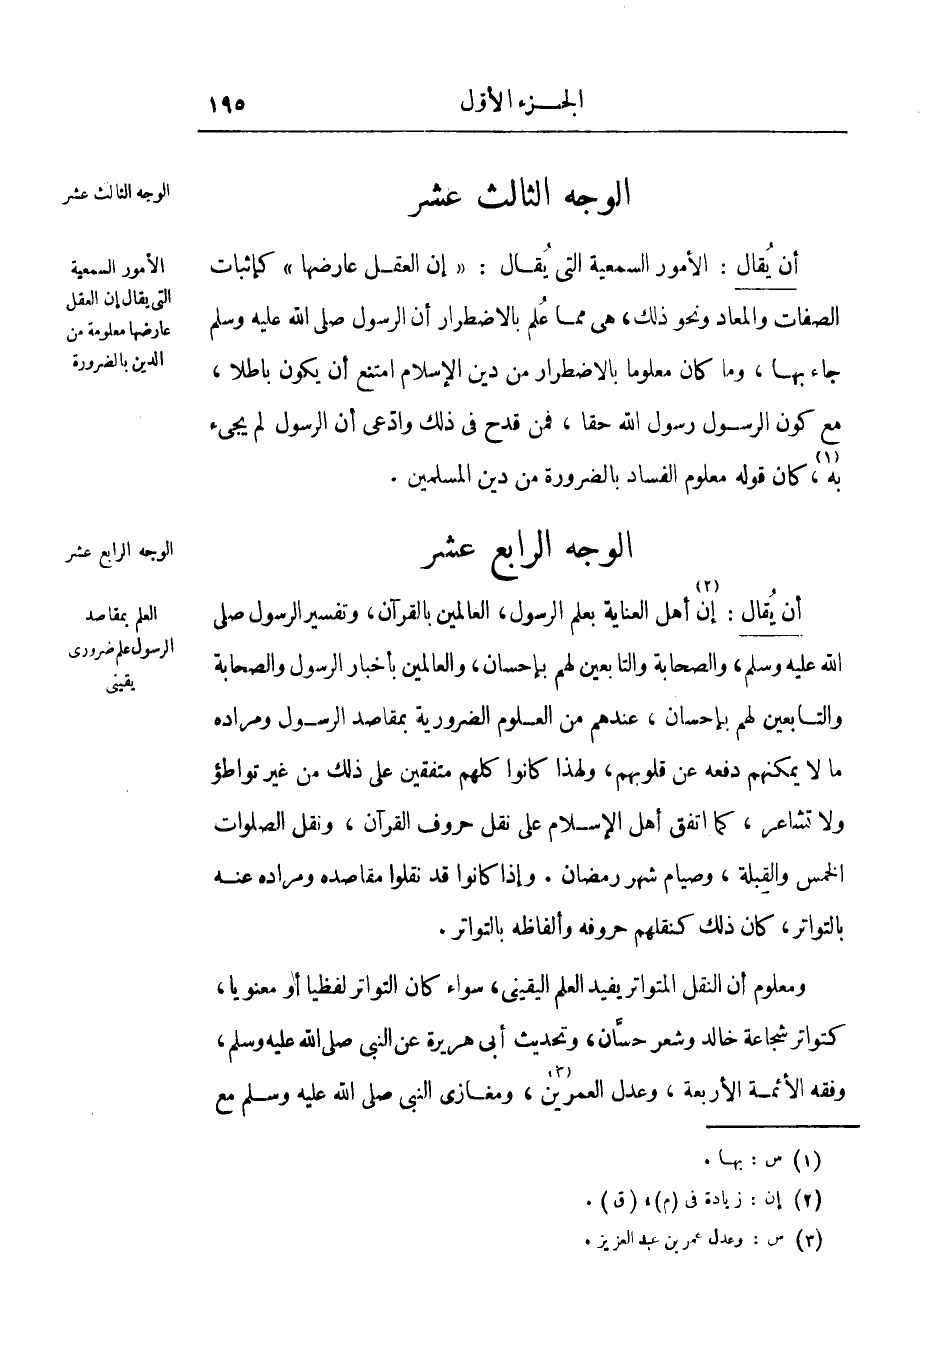 الجزء الأول ١٩٥
الوجه الثالث عشر
الوجه الثالث عشر
أن يُقال : الأمور السمعية التى يُقال : « إن العقل عارضها » كإثبات
الصفات والمعاد ونحو ذلك، هى مما عُلم بالاضطرار أن الرسول صلى الله عليه وسلم
جاء بها ، وما كان معلوما بالاضطرار من دين الإسلام امتنع أن يكون باطلا ،
مع كون الرسول رسول الله حقا ، فمن قدح فى ذلك وادّعى أن الرسول لم يجىء
به (١)، كان قوله معلوم الفساد بالضرورة من دين المسلمين .
الأمور السمعية
التى يقال إن العقل
عارضها معلومة من
الدين بالضرورة
الوجه الرابع عشر
الوجه الرابع عشر
أن يُقال : إن (٢) أهل العناية بعلم الرسول، العالمين بالقرآن، وتفسير الرسول صلى
الله عليه وسلم، والصحابة والتابعين لهم بإحسان، والعالمين بأخبار الرسول والصحابة
والتابعين لهم بإحسان ، عندهم من العلوم الضرورية بمقاصد الرسول ومراده
ما لا يمكنهم دفعه عن قلوبهم، ولهذا كانوا كلهم متفقين على ذلك من غير تواطؤ
ولا تشاعر ، كما اتفق أهل الإسلام على نقل حروف القرآن ، ونقل الصلوات
الخمس والقبلة ، وصيام شهر رمضان . وإذا كانوا قد نقلوا مقاصده ومراده عنه
بالتواتر، كان ذلك كنقلهم حروفه وألفاظه بالتواتر .
العلم بمقاصد
الرسول علم ضرورى
يقينى
ومعلوم أن النقل المتواتر يفيد العلم اليقينى، سواء كان التواتر لفظيا أو معنويا ،
كتواتر شجاعة خالد وشعر حسَّان، وتحديث أبى هريرة عن النبى صلى الله عليه وسلم ،
وفقه الأئمة الأربعة ، وعدل العمرين (٣) ، ومغازى النبى صلى الله عليه وسلم مع
(١) س : بها .
(٢) إن : زيادة فى (م)، (ق) .
(٣) س : وعدل عمر بن عبد العزيز .